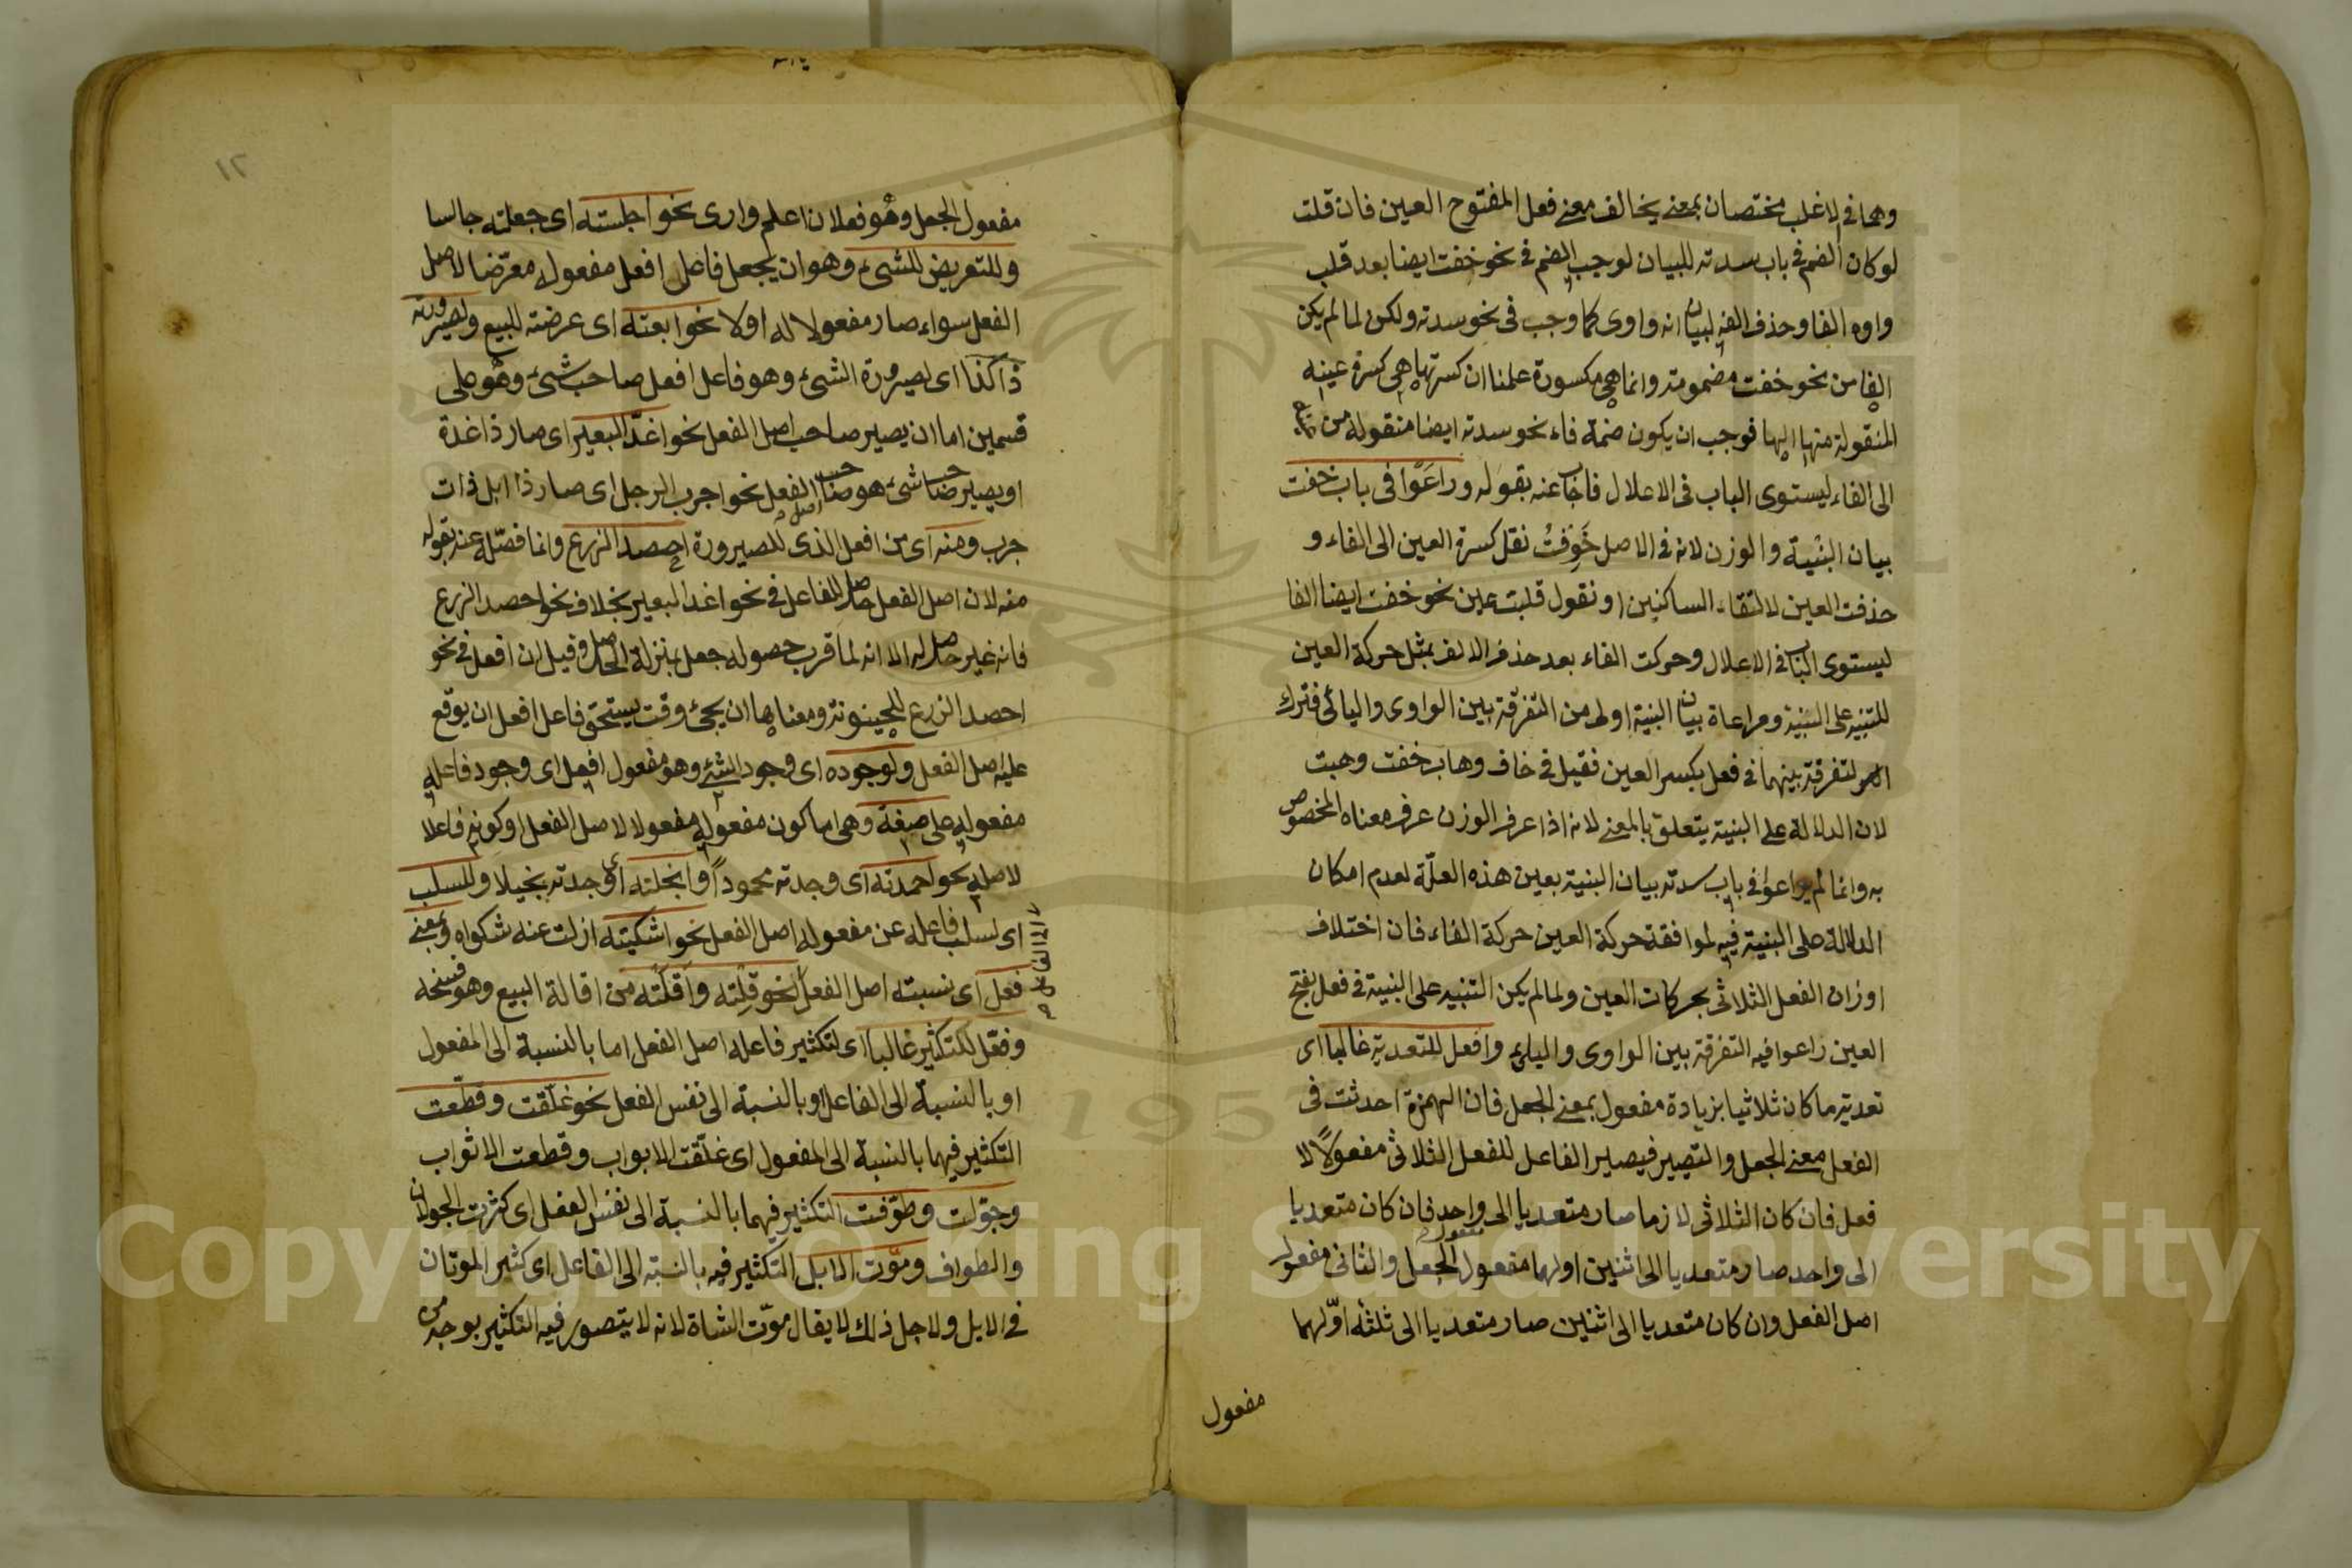 وهما في الاغلب مختصان بمعنى يخالف معنى فعل المفتوح العين فان قلت
لو كان الضم في باب سدته للبيان لوجب الضم في نحو خفت ايضا بعد قلب
واوه الفا وحذف الفه لبيان انه واوى كما وجب في نحو سدته ولكن لما لم يكن
الفا من نحو خفت مضمومة وانما هي مكسورة علمنا ان كسرتها هي كسرة عينه
المنقولة منها اليها فوجب ان يكون ضمة فاء نحو سدته ايضا منقولة من
الى الفاء ليستوى الباب في الاعلال فاجاب عنه بقوله وراعوا في باب خفت
بيان البنية والوزن لانه في الاصل خَوِفْتُ نقل كسرة العين الى الفاء و
حذفت العين لالتقاء الساكنين او نقول قلبت عين نحو خفت ايضا الفا
ليستوى الباب في الاعلال وحركت الفاء بعد حذف الالف بمثل حركة العين
للتنبيه على البنية ومراعاة بيان البنية اولى من التفرقة بين الواوى واليائى فترك
التفرقة بينهما في فعل بكسر العين فقيل في خاف وهاب خفت وهبت
لان الدلالة على البنية يتعلق بالمعنى لانه اذا عرف الوزن عرف معناه المخصوص
به وانما لم يراعوا في باب سدته بيان البنية بعين هذه العلّة لعدم امكان
الدلالة على البنية فيه لموافقة حركة العين حركة الفاء فان اختلاف
اوزان الفعل الثلاثى بحركات العين ولما لم يكن التنبيه على البنية في فعل بفتح
العين راعوا فيه التفرقة بين الواوى واليائى وافعل للتعدية غالبا اى
تعدية ما كان ثلاثيا بزيادة مفعول بمعنى الجعل فان الهمزة احدثت في
الفعل معنى الجعل والتصيير فيصير الفاعل للفعل الثلاثى مفعولًا لا
فعل فان كان الثلاثى لازما صار متعديا الى واحد فان كان متعديا
الى واحد صار متعديا الى اثنين اولهما مفعول الجعل والثانى مفعول
اصل الفعل وان كان متعديا الى اثنين صار متعديا الى ثلثة اوّلهما
مفعول
١٢
مفعول الجعل وهو فعلان اعلم وارى نحو اجلسته اى جعلته جالسا
وللتعريض للشىء وهو ان يجعل فاعل افعل مفعوله معرّضا لاصل
الفعل سواء صار مفعولا له او لا نحو ابعته اى عرضته للبيع ولصيرورته
ذا كذا اى لصيرورة الشىء وهو فاعل افعل صاحب شىء وهو على
قسمين اما ان يصير صاحب اصل الفعل نحو اغدّ البعير اى صار ذا غدة
او يصير صاحب شىء هو صاحب اصل الفعل نحو اجرب الرجل اى صار ذا ابل ذات
جرب ومنه اى من افعل الذى للصيرورة احصد الزرع وانما فصّله عنه بقوله
منه لان اصل الفعل حاصل للفاعل في نحو اغد البعير بخلاف نحو احصد الزرع
فانه غير حاصل له الا انه لما قرب حصوله جعل بمنزلة الحاصل وقيل ان افعل في نحو
احصد الزرع للحينونة ومعناها ان يجىء وقت يستحق فاعل افعل ان يوقّع
عليه اصل الفعل ولوجوده اى وجود الشىء وهو مفعول افعل اى وجود فاعله
مفعوله على صفة وهى اما كون مفعوله مفعولا لاصل الفعل او كونه فاعلا
لاصله نحو احمدته اى وجدته محمودًا وابخلته اى وجدته بخيلا وللسلب
اى لسلب فاعله عن مفعوله اصل الفعل نحو اشكيته ازلت عنه شكواه وبمعنى
فعل اى نسبته اصل الفعل نحو قلته واقلته من اقالة البيع وهو فسخه
وفعّل للتكثير غالبا اى لتكثير فاعله اصل الفعل اما بالنسبة الى المفعول
او بالنسبة الى الفاعل او بالنسبة الى نفس الفعل نحو غلّقت وقطّعت
التكثير فيهما بالنسبة الى المفعول اى غلّقت الابواب وقطعت الاثواب
وجوّلت وطوّفت التكثير فيهما بالنسبة الى نفس الفعل اى كثرت الجولان
والطواف وموّت الابل التكثير فيه بالنسبة الى الفاعل اى كثير الموتان
في الابل ولاجل ذلك لا يقال موّت الشاة لانه لا يتصور فيه التكثير بوجه من
Copyright © King Saud University
195